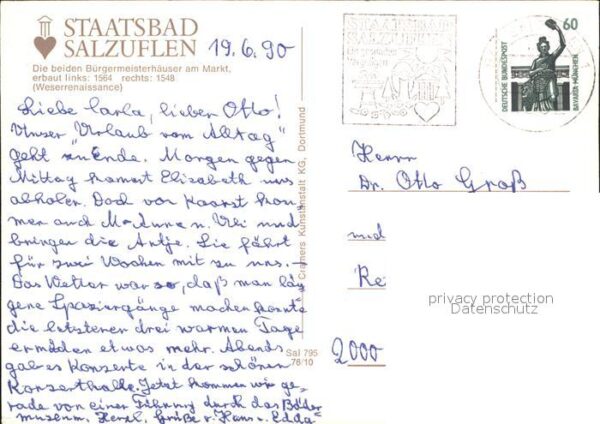 STAATSBAD
SALZUFLEN
19.6.90
Die beiden Bürgermeisterhäuser am Markt,
erbaut links: 1564 rechts: 1548
(Weserrenaissance)
Liebe Carla, lieber Otto!
Unser "Urlaub vom Alltag"
geht zu Ende. Morgen gegen
Mittag kommt Elisabeth uns
abholen. Doch von Kaarst kom-
men auch M-Anne u. und
bringen die Antje. Sie fährt
für zwei Wochen mit zu uns. —
Das Wetter war so, daß man län
gere Spaziergänge machen konnte
die letzteren drei warmen Tage
ermüden etwas mehr. Abends
gab es Konzerte in der schönen
Konzerthalle. Jetzt kommen wir ge-
rade von einer Führung durch das Bäder
museum. Herzl. Grüße v. Hans u. Edda
Cramers Kunstanstalt KG, Dortmund
Sal 795
78/10
STAATSBAD
SALZUFLEN
60
DEUTSCHE BUNDESPOST
BAVARIA MÜNCHEN
Herrn
Dr. Otto Groß
und
Re
privacy protection
Datenschutz
2000